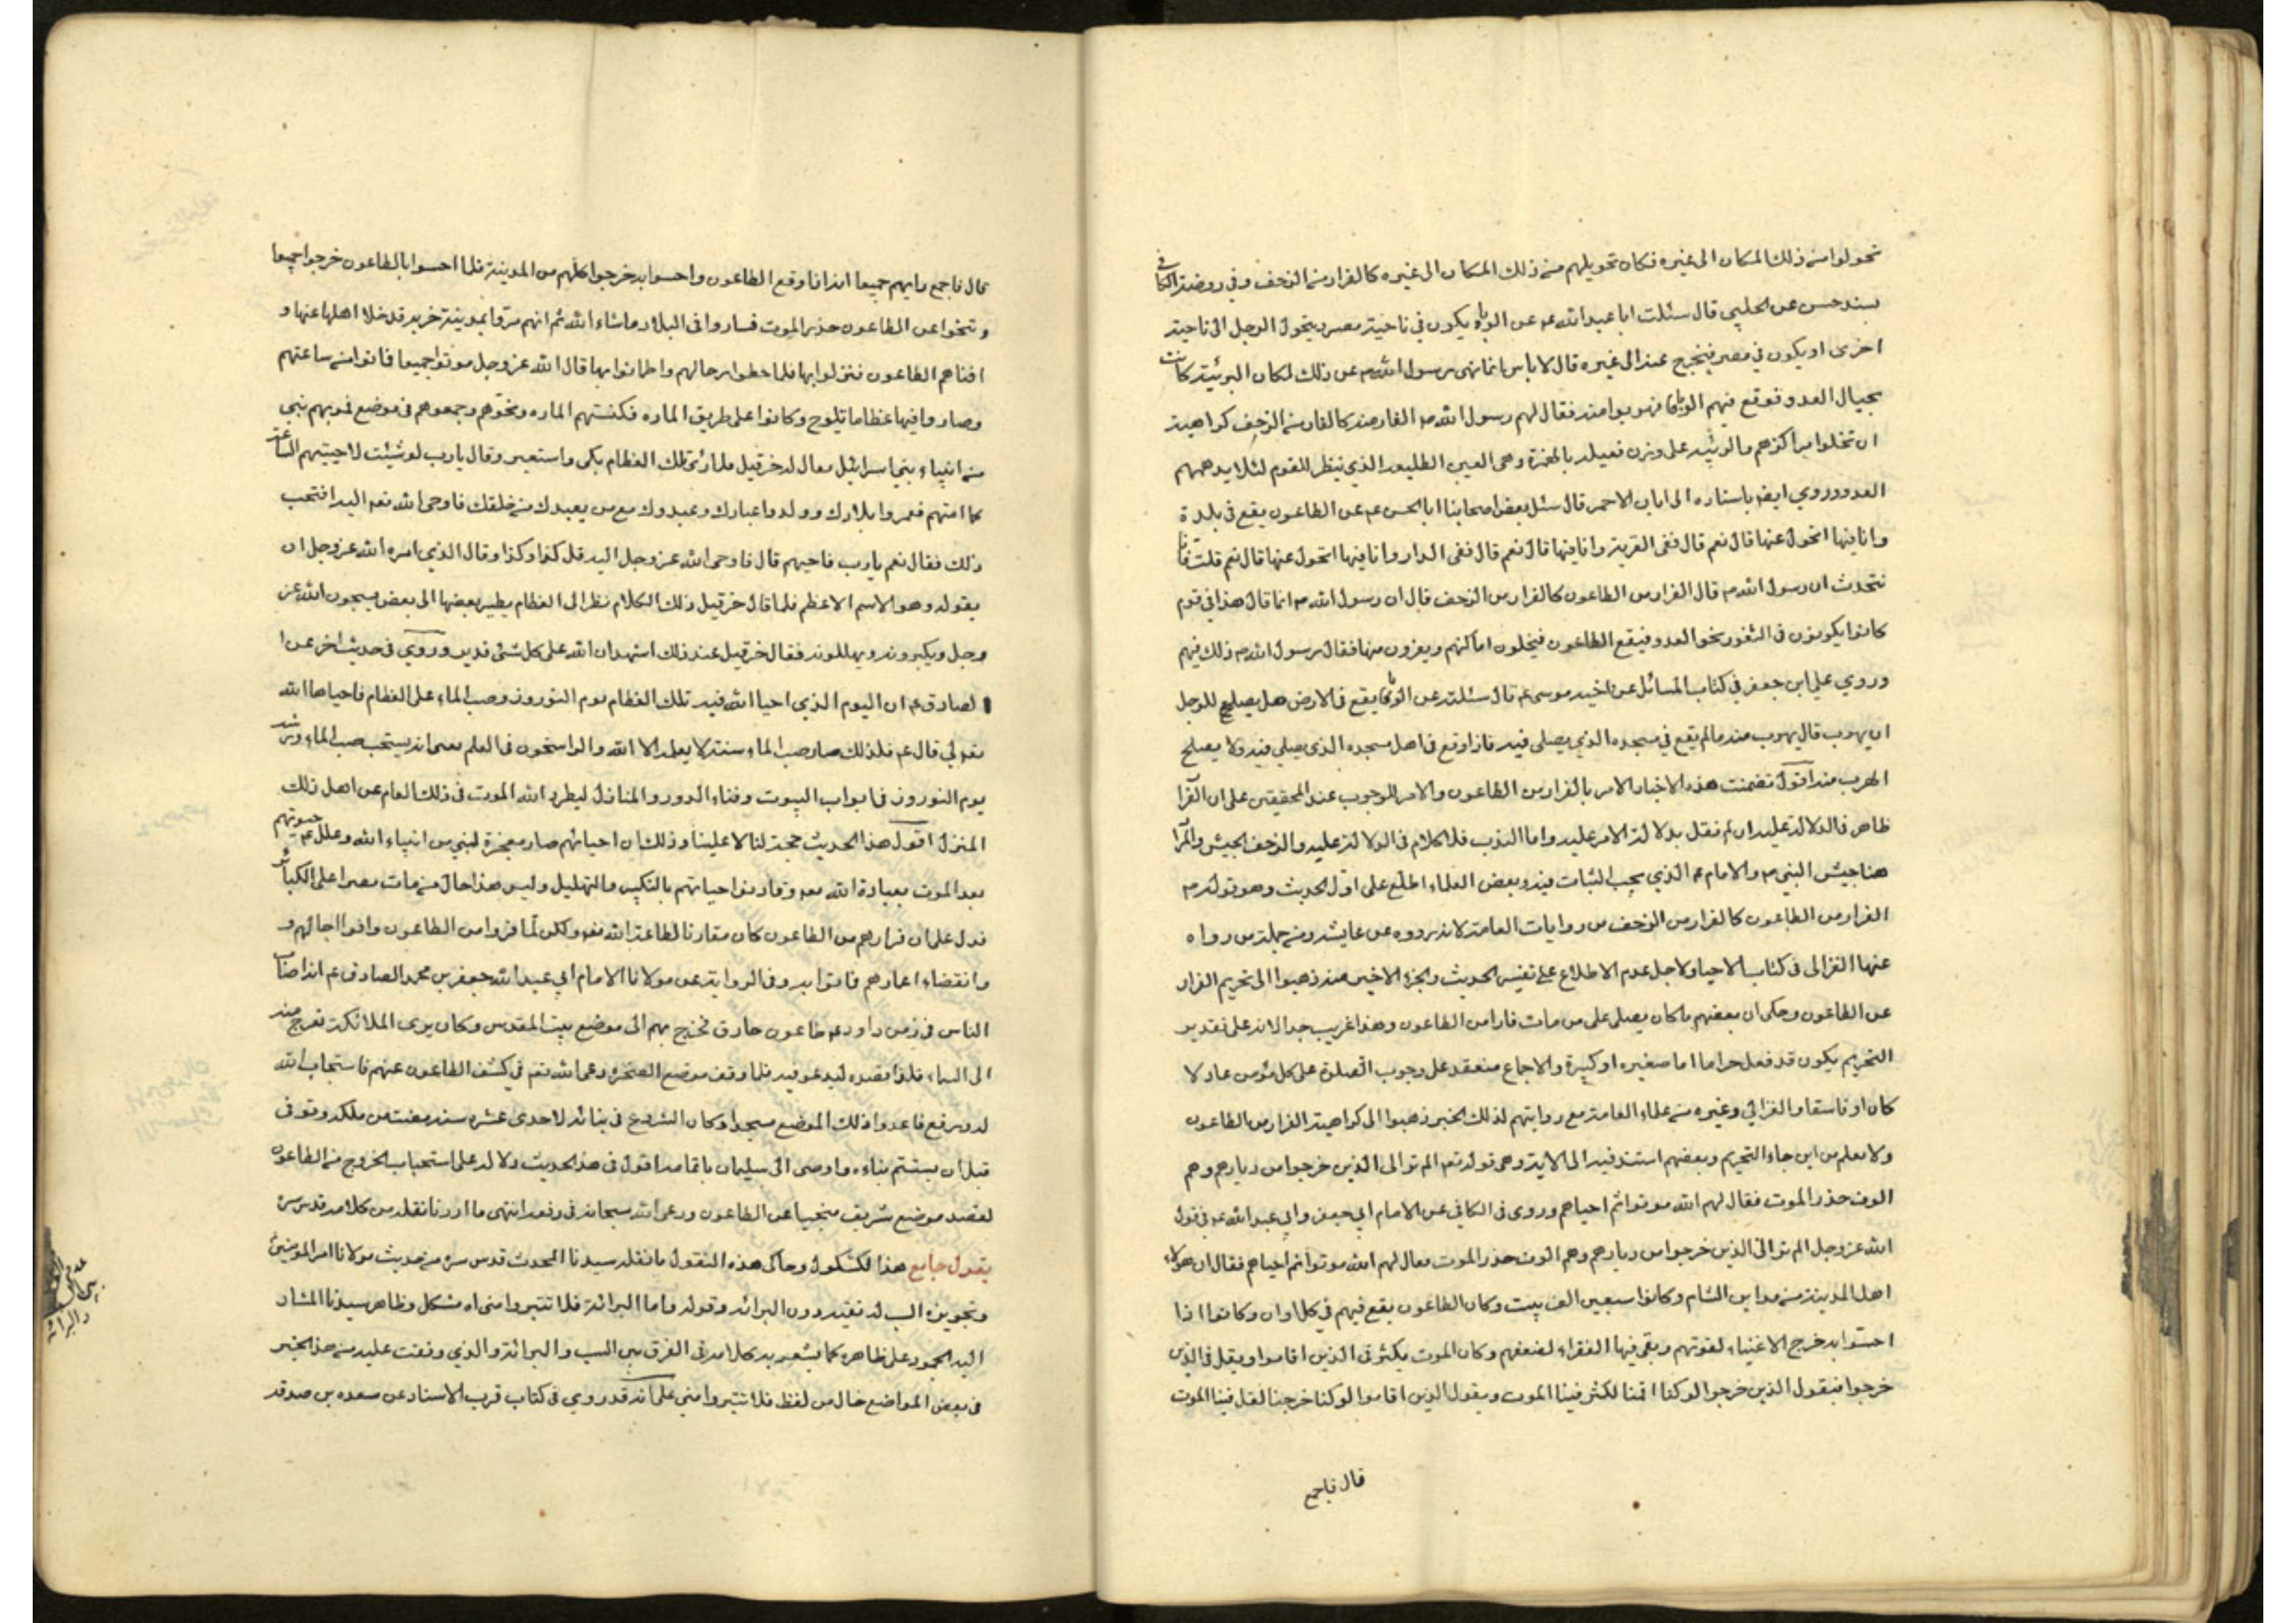 تحولوا من ذلك المكان الى غيره فكان تحويلهم من ذلك المكان الى غيره كالفرار من الزحف وفي روضة الكافي
بسند حسن عن الحلبي قال سئلت ابا عبد الله عم عن الوباء يكون في ناحية مصر يتحول الرجل الى ناحية
اخرى او يكون في مصر فيخرج عنه الى غيره قال لا باس انما نهى رسول الله ص عن ذلك لمكان الربئية كانت
بحيال العدو فوقع فيهم الوباء فهربوا منه فقال لهم رسول الله ص الفار منه كالفار من الزحف كراهية
ان تخلوا مراكزهم والربئية على وزن فعيلة بالهمزة وهى العين الطليعة الذي ينظر للقوم لئلا يدهمهم
العدو وروي ايضا باسناده الى ابان الاحمر قال سئل بعض اصحابنا ابا الحسن عم عن الطاعون يقع في بلدة
وانا فيها اتحول عنها قال نعم قال ففى القرية وانا فيها قال نعم قال ففى الدار وانا فيها اتحول عنها قال نعم قلت فانا
نتحدث ان رسول الله ص قال الفرار من الطاعون كالفرار من الزحف قال ان رسول الله ص انما قال هذا في قوم
كانوا يكونون في الثغور نحو العدو فيقع الطاعون فيخلون اماكنهم ويفرون منها فقال رسول الله ص ذلك فيهم
وروي علي ابن جعفر في كتاب المسائل عن اخيه موسى عم قال سئلته عن الوباء يقع في الارض هل يصلح للرجل
ان يهرب قال يهرب منه ما لم يقع في مسجده الذي يصلى فيه فاذا وقع في اهل مسجده الذي يصلي فيه ولا يصلح
الهرب منه اقول تضمنت هذه الاخبار الامر بالفرار من الطاعون والامر للوجوب عند المحققين على ان القرآن
ظاهر في الدلالة عليه ان لم نقل بدلالة الامر عليه واما الندب فلا كلام في الدلالة عليه والزحف الجيش والمراد
هنا جيش النبي ص والامام عم الذي يجب الثبات فيه وبعض العلماء اطلع على اول الحديث وهو قوله ص
الفرار من الطاعون كالفرار من الزحف من روايات العامة لانه رووه عن عايشه ومن جملة من رواه
عنها الغزالى في كتاب الاحيا ولاجل عدم الاطلاع على تفسير الحديث والجزء الاخير منه ذهبوا الى تحريم الفرار
عن الطاعون وحكى ان بعضهم ما كان يصلى على من مات فارا من الطاعون وهذا غريب جدا لانه على تقدير
التحريم يكون قد فعل حراما اما صغيره او كبيرة والاجماع منعقد على وجوب الصلوة على كل مؤمن عادلا
كان او فاسقا والغزالي وغيره من علماء العامة مع روايتهم لذلك الخبر ذهبوا الى كراهية الفرار من الطاعون
ولا يعلم من اين جاء التحريم وبعضهم استند فيه الى الاية وهى قوله تعم الم تر الى الذين خرجوا من ديارهم وهم
الوف حذر الموت فقال لهم الله موتوا ثم احياهم وروى في الكافي عن الامام ابي جعفر وابي عبد الله عم في قول
الله عز وجل الم تر الى الذين خرجوا من ديارهم وهم الوف حذر الموت فقال لهم الله موتوا ثم احياهم فقال ان هؤلاء
اهل المدينة من مداين الشام وكانوا سبعين الف بيت وكان الطاعون يقع فيهم في كل اوان وكانوا اذا
احسوا به خرج الاغنياء لقوتهم وبقى فيها الفقراء لضعفهم وكان الموت يكثر في الذين اقاموا ويقل في الذين
خرجوا فيقول الذين خرجوا لو كنا اقمنا لكثر فينا الموت ويقول الذين اقاموا لو كنا خرجنا لقل فينا الموت
قال فاجمع
قال فاجمع رايهم جميعا انه اذا وقع الطاعون واحسوا به خرجوا كلهم من المدينة فلما احسوا بالطاعون خرجوا جميعا
وتنحوا عن الطاعون حذر الموت فساروا في البلاد ما شاء الله ثم انهم مروا بمدينة خربة قد خلا اهلها عنها و
افناهم الطاعون فنزلوا بها فلما حطوا رحالهم واطمانوا بها قال الله عز وجل موتوا جميعا فماتوا من ساعتهم
وصاروا فيها عظاما تلوح وكانوا على طريق الماره فكنستهم الماره ونحوهم وجمعوهم في موضع فمر بهم نبى
من انبياء بني اسرائيل يقال له حزقيل فلما رئى تلك العظام بكى واستعبر وقال يا رب لو شئت لاحييتهم الساعة
كما امتهم فعمروا بلادك وولدوا عبادك وعبدوك مع من يعبدك من خلقك فاوحى الله تعم اليه افتحب
ذلك فقال نعم يا رب فاحيهم قال فاوحى الله عز وجل اليه قل كذا وكذا وقال الذي امره الله عز وجل ان
يقوله وهو الاسم الاعظم فلما قال حزقيل ذلك الكلام نظر الى العظام يطير بعضها الى بعض يسبحون الله عز
وجل ويكبرونه ويهللونه فقال حزقيل عند ذلك اشهد ان الله على كل شئ قدير وروي في حديث اخر عن ا
لصادق عم ان اليوم الذي احيا الله فيه تلك العظام يوم النوروز وصب الماء على العظام فاحياها الله
قال عم فلذلك صار صب الماء سنة لا يعلمه الا الله والراسخون في العلم يعنى انه يستحب صب الماء ورشه
يوم النوروز في ابواب البيوت وفناء الدور والمنازل ليطرد الله الموت في ذلك العام عن اهل ذلك
المنزل اقول هذا الحديث حجة لنا لا علينا وذلك ان احيائهم صار معجزة لنبي من انبياء الله وعلل عم حيوتهم
بعد الموت بعبادة الله وقارنوا حياتهم بالتكبير والتهليل وليس هذا حال من مات مصرا على الكبائر
فدل على ان فرارهم من الطاعون كان مقارنا لطاعة الله تعم ولكن لما فروا من الطاعون وافوا اجالهم و
وانقضاء اعمارهم فماتوا به وفي الرواية عن مولانا الامام ابي عبد الله جعفر بن محمد الصادق عم انه اصاب
الناس في زمن داود عم طاعون فخرج بهم الى موضع بيت المقدس وكان يرى الملائكة تعرج منه
الى السماء فلذا قصده ليدعو فيه فلما وقف موضع الصخرة دعى الله تعم في كشف الطاعون عنهم فاستجاب الله
له ورفع فاعدوا ذلك الموضع مسجدا وكان الشروع في بنائه لاحدى عشره سنه مضت من ملكه وتوفى
قبل ان يستتم بناءه واوصى الى سليمان باتمامه اقول في هذا الحديث دلالة على استحباب الخروج من الطاعون
لقصد موضع شريف منجيا عن الطاعون ودعى الله سبحانه في رفعه انتهى ما اردنا نقله من كلامه قدس سره
يقول جامع هذا الكشكول وحاكى هذه النقول ما نقله سيدنا المحدث قدس سره من حديث مولانا امير المؤمنين
وتجويزه السب له تقية دون البرائه وقوله واما البرائة فلا تتبروا منى اه مشكل وظاهر سيدنا المشار
اليه الجمود على ظاهره كما يشعر به كلامه في الفرق بين السب والبرائة والذي وقفت عليه من هذا الخبر
في بعض المواضع خال من لفظ فلا تتبروا مني على انه قد روي في كتاب قرب الاسناد عن مسعده بن صدقه